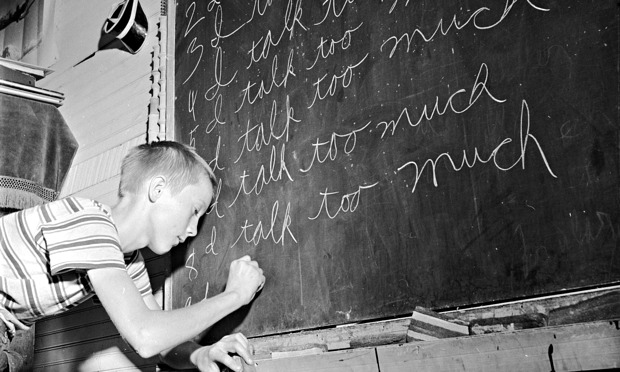 2 I talk too
3 I talk too much
4 I talk too
5 I talk too
I talk too much
I talk too much
8 I